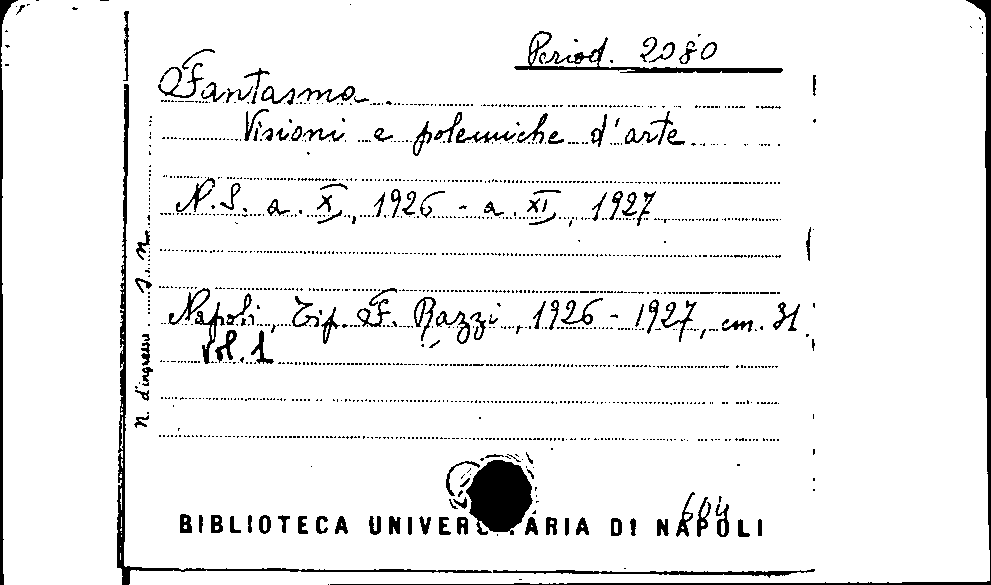 Period. 2080
Fantasma.
Visioni e polemiche d'arte
N.S. a. XI, 1926 - a. XI, 1927
Napoli, Tip. F. Razzi, 1926 - 1927, cm. 31.
vol. 1
N. d'ingresso s. n.
604
BIBLIOTECA UNIVER ARIA DI NAPOLI